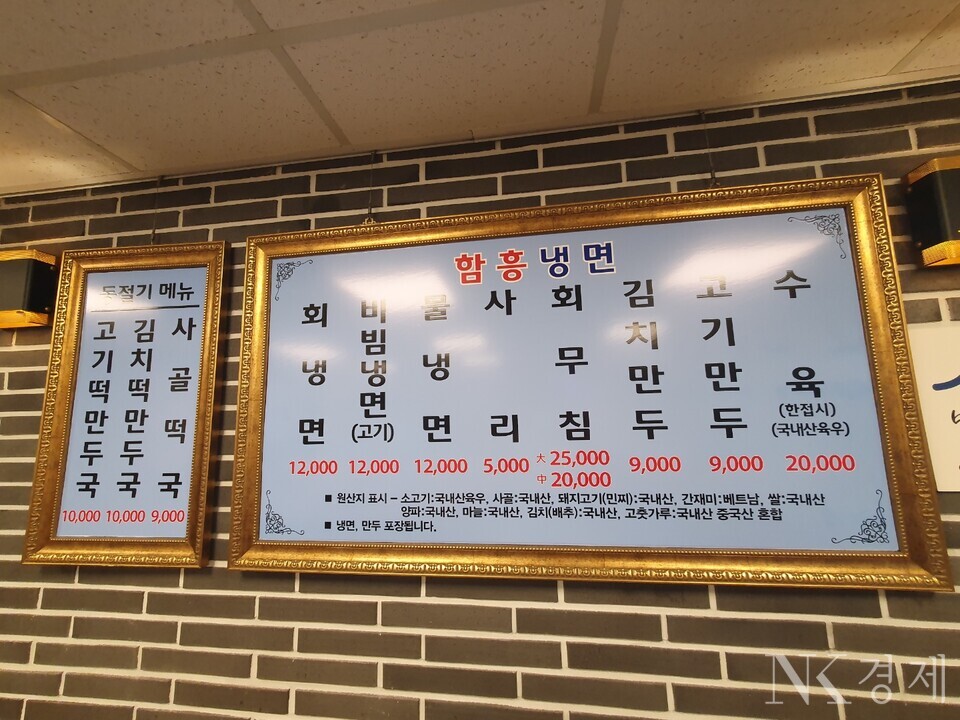 동절기 메뉴
고기떡만두국 10,000
김치떡만두국 10,000
사골떡국 9,000
함흥냉면
회냉면 12,000
비빔냉면 (고기) 12,000
물냉면 12,000
사리 5,000
회무침 大 25,000
中 20,000
김치만두 9,000
고기만두 9,000
수육 (한접시) (국내산육우) 20,000
■ 원산지 표시 – 소고기:국내산육우, 사골:국내산, 돼지고기(민찌):국내산, 간재미:베트남, 쌀:국내산
양파:국내산, 마늘:국내산, 김치(배추):국내산, 고춧가루:국내산 중국산 혼합
■ 냉면, 만두 포장됩니다.
NK경제